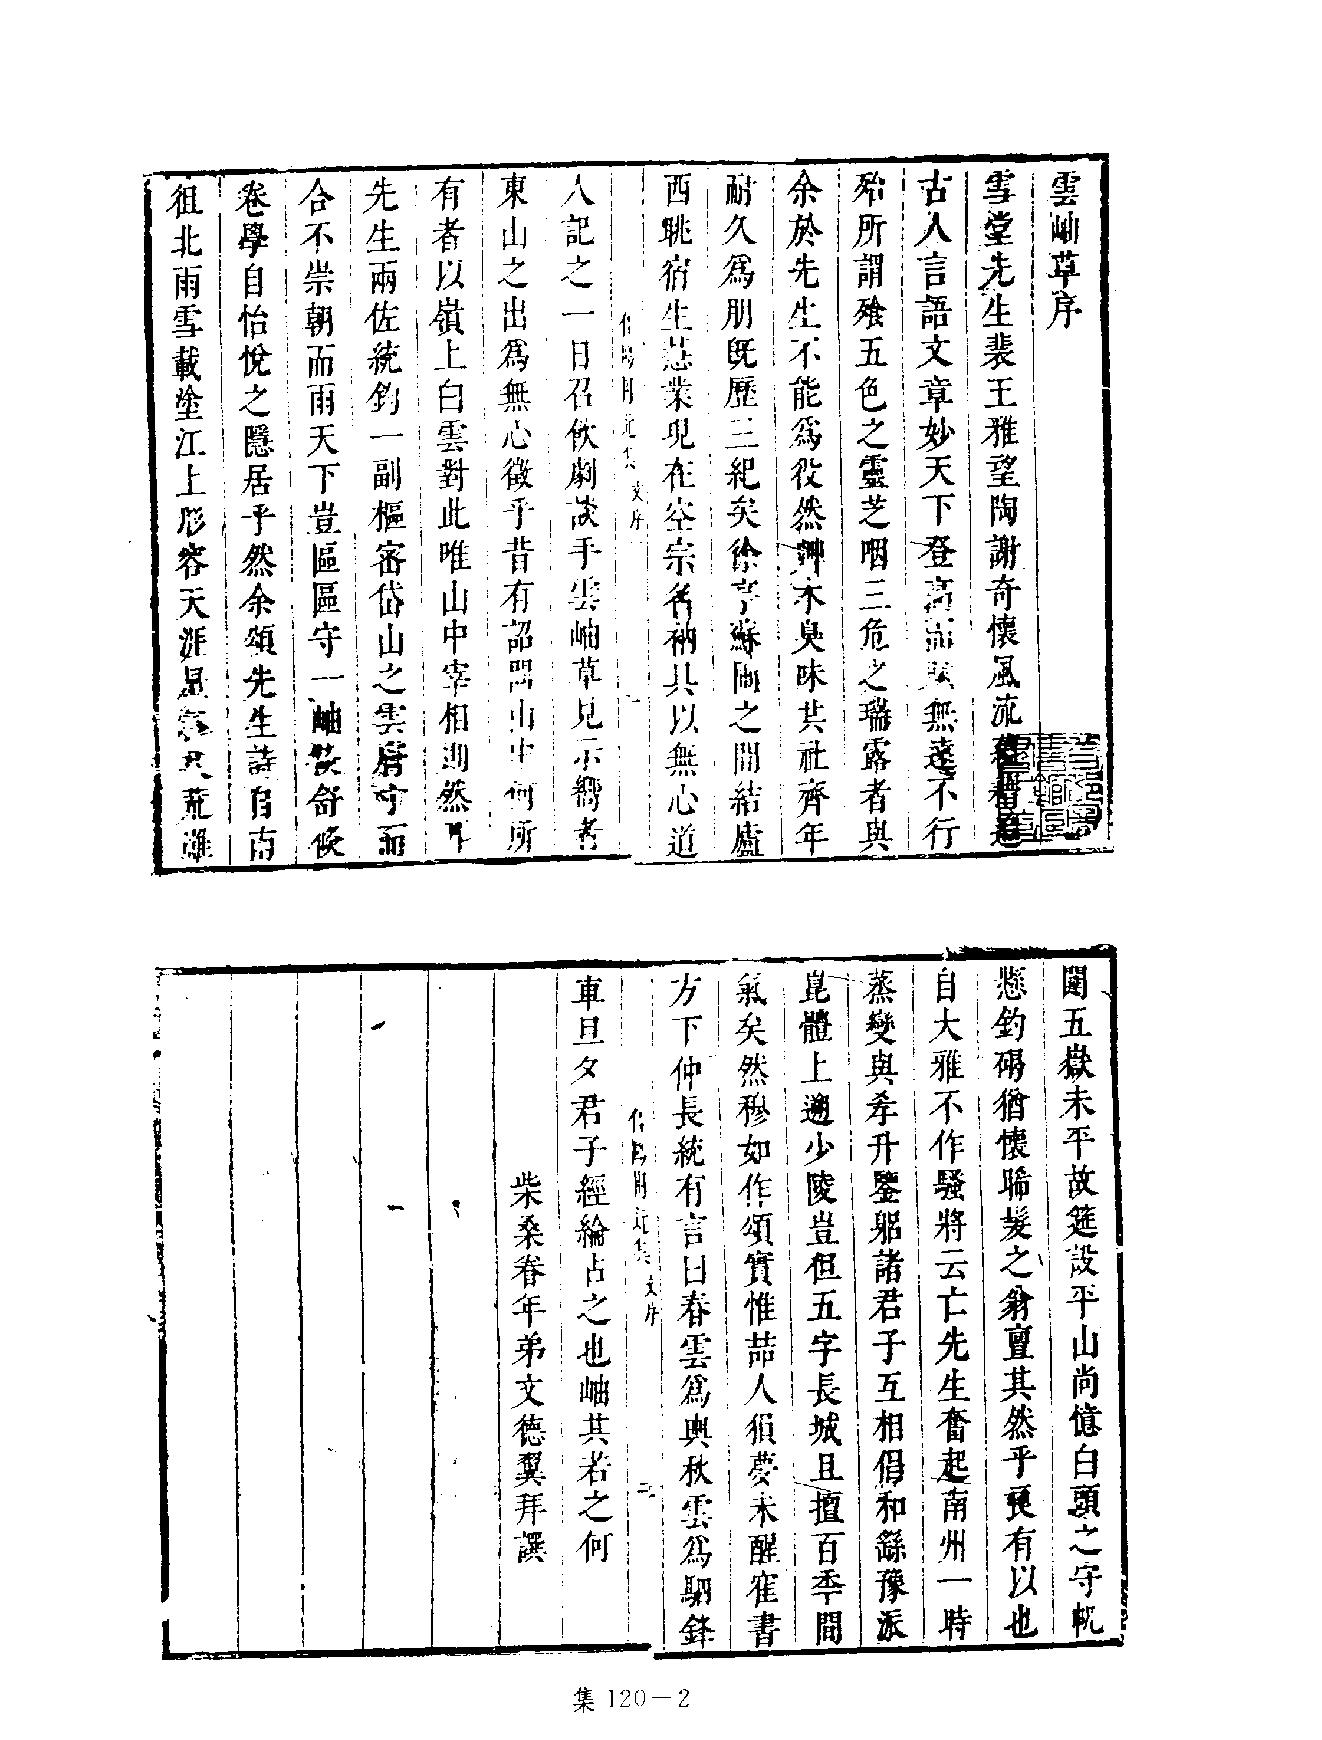 雲岫草序
雪堂先生裴王雅望陶謝奇懷風流
古人言語文章妙天下登高而賦無遠不行
殆所謂飱五色之靈芝咽三危之瑞露者與
余於先生不能爲役然艸木臭味其社齊年
耐久爲朋旣歷三紀矣徐亭蘇圃之間結廬
西眺宿生慧業現在空宗名衲具以無心道
文序
人記之一日召飲劇談手雲岫草見示嚮者
東山之出爲無心徵乎昔有詔問山中何所
有者以嶺上白雲對此唯山中宰相則然耳
先生兩佐統鈞一副樞密岱山之雲膚寸而
合不崇朝而雨天下豈區區守一岫歛舒候
卷學自怡悅之隱居乎然余頌先生詩自南
徂北雨雪載塗江上形容天涯星 荒雞
閩五嶽未平故筵設平山尚憶白頭之守帆
懸釣碣猶懷晞髮之翁亶其然乎良有以也
自大雅不作騷將云亡先生奮起南州一時
蒸變與孝升鑒躬諸君子互相倡和繇豫派
崑體上遡少陵豈但五字長城且擅百季間
氣矣然穆如作頌實惟喆人狽夢未醒寉書
方下仲長統有言曰春雲爲輿秋雲爲駟鋒
文序
二
車旦夕君子經綸占之也岫其若之何
柴桑眷年弟文德翼拜譔
集 120－2